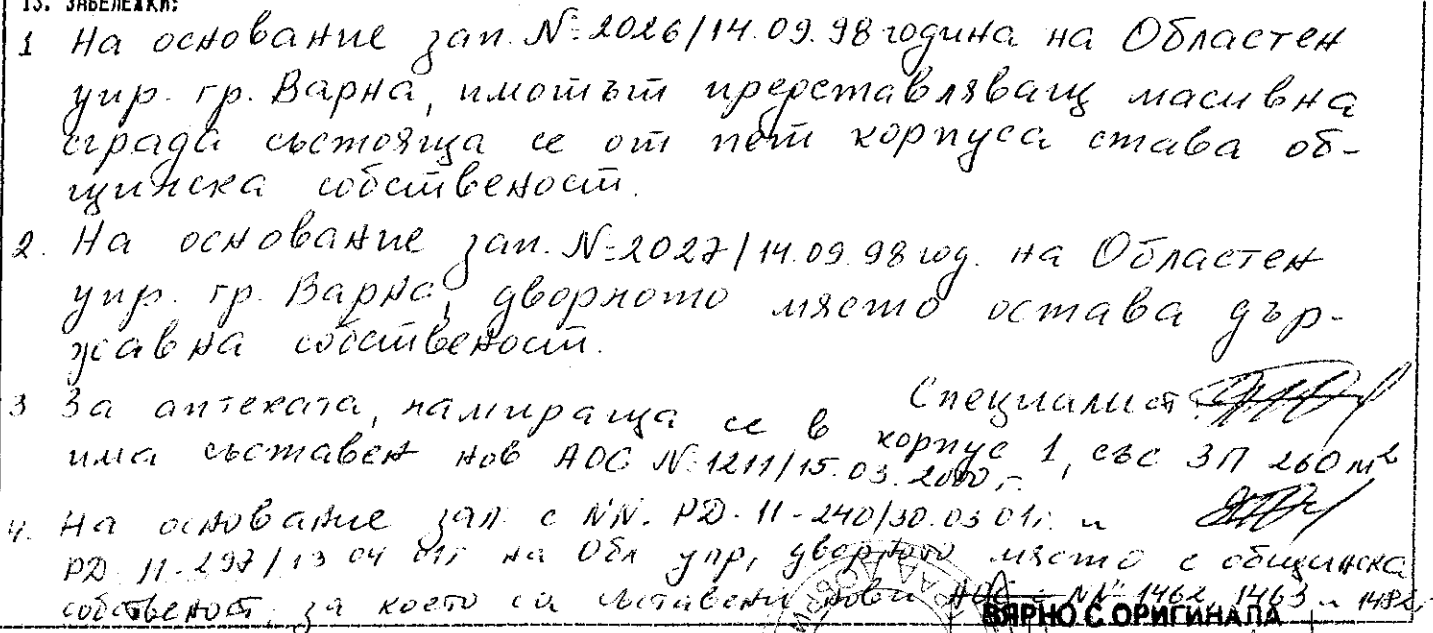 13. ЗАБЕЛЕЖКИ:
1 На основание зап. №2026/14.09.98 година на Областен
упр. гр. Варна, имотът представляващ масивна
сграда състояща се от пет корпуса става об-
щинска собственост.
2. На основание зап. №2027/14.09.98 год. на Областен
упр. гр. Варна, дворното място остава дър-
жавна собственост.
Специалист:
3 За аптеката, намираща се в корпус 1, със ЗП 260 м²
има съставен нов АОС №1211/15.03.2000 г.
4. На основание зап. с NN. РД-11-240/30.03 01г. и
РД 11-297/13 04 01г на Обл упр, дворното място е общинска
собственост, за което са съставени нови АОС NN 1462, 1463 и 1482
ВЯРНО С ОРИГИНАЛА